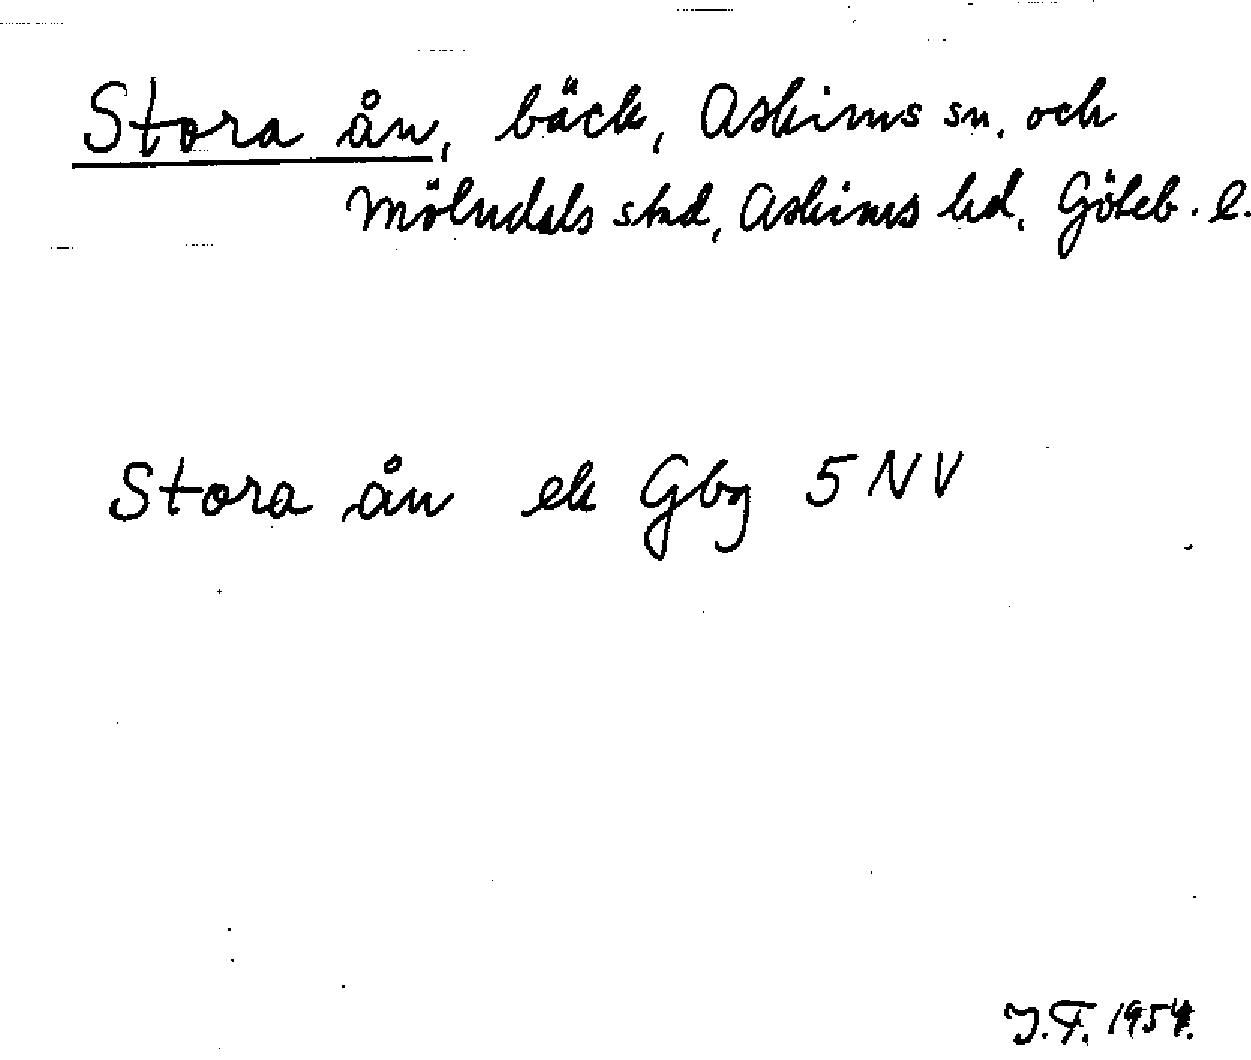 Stora ån, bäck, Askims sn. och
Mölndals stad, Askims hd. Göteb. l.
Stora ån ek Gbg 5 NV
J.F. 1954.